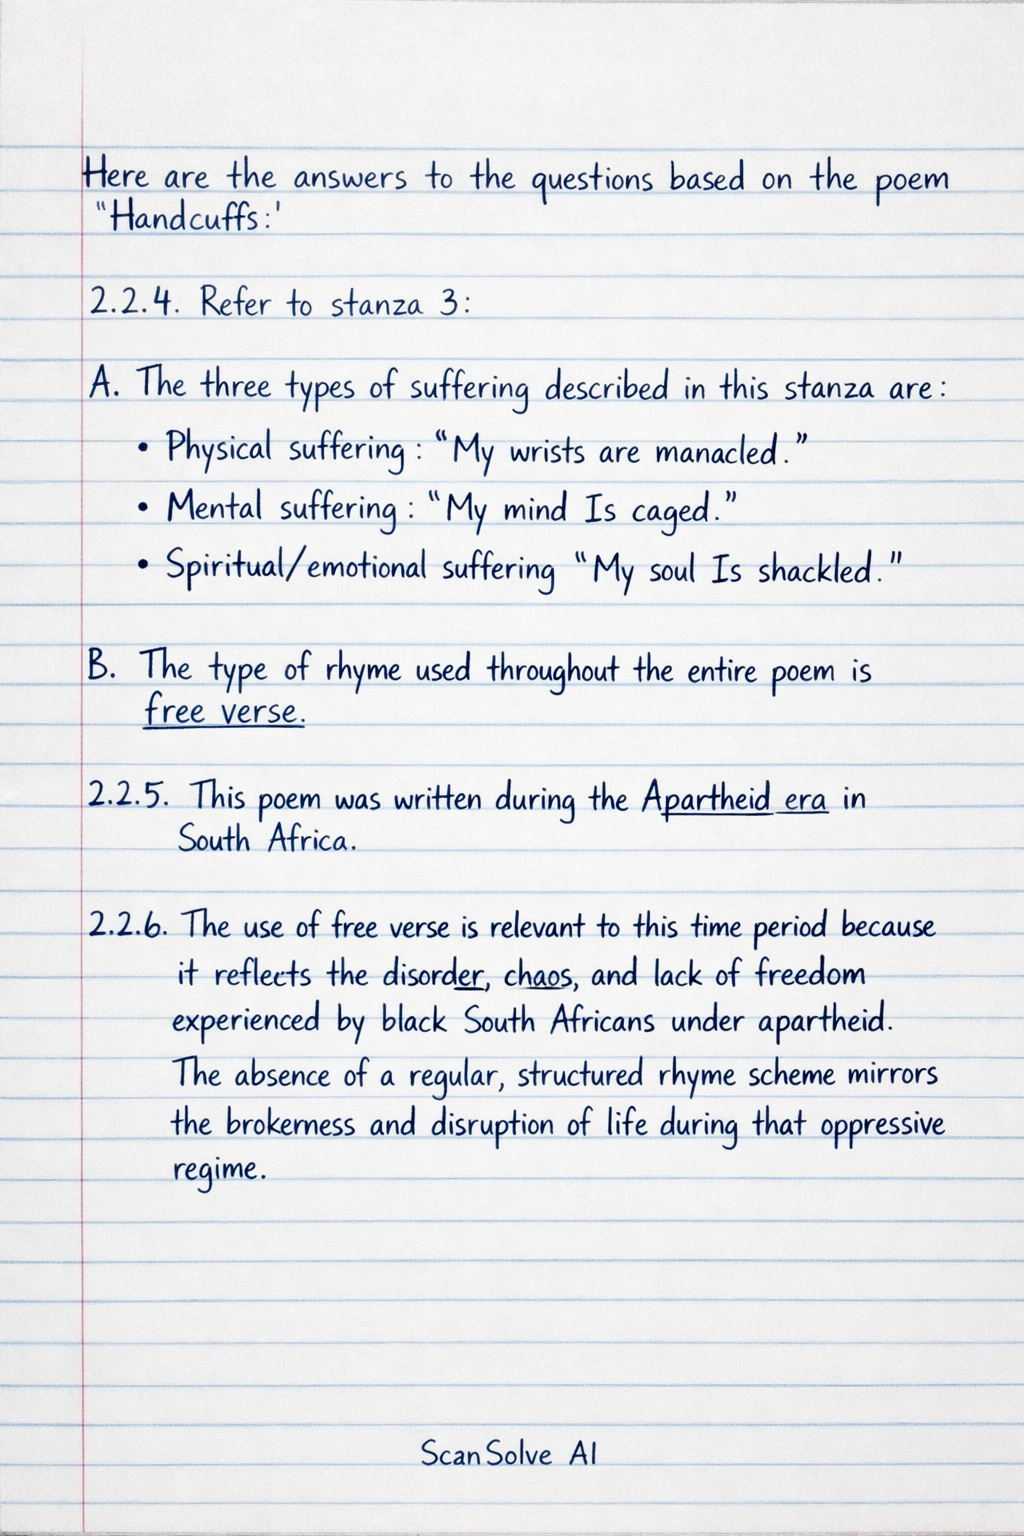 Here are the answers to the questions based on the poem
"Handcuffs:'
2.2.4. Refer to stanza 3:
A. The three types of suffering described in this stanza are:
• Physical suffering: “My wrists are manacled.”
• Mental suffering: “My mind Is caged.”
• Spiritual/emotional suffering “My soul Is shackled.”
B. The type of rhyme used throughout the entire poem is
free verse.
2.2.5. This poem was written during the Apartheid era in
South Africa.
2.2.6. The use of free verse is relevant to this time period because
it reflects the disorder, chaos, and lack of freedom
experienced by black South Africans under apartheid.
The absence of a regular, structured rhyme scheme mirrors
the brokerness and disruption of life during that oppressive
regime.
ScanSolve AI